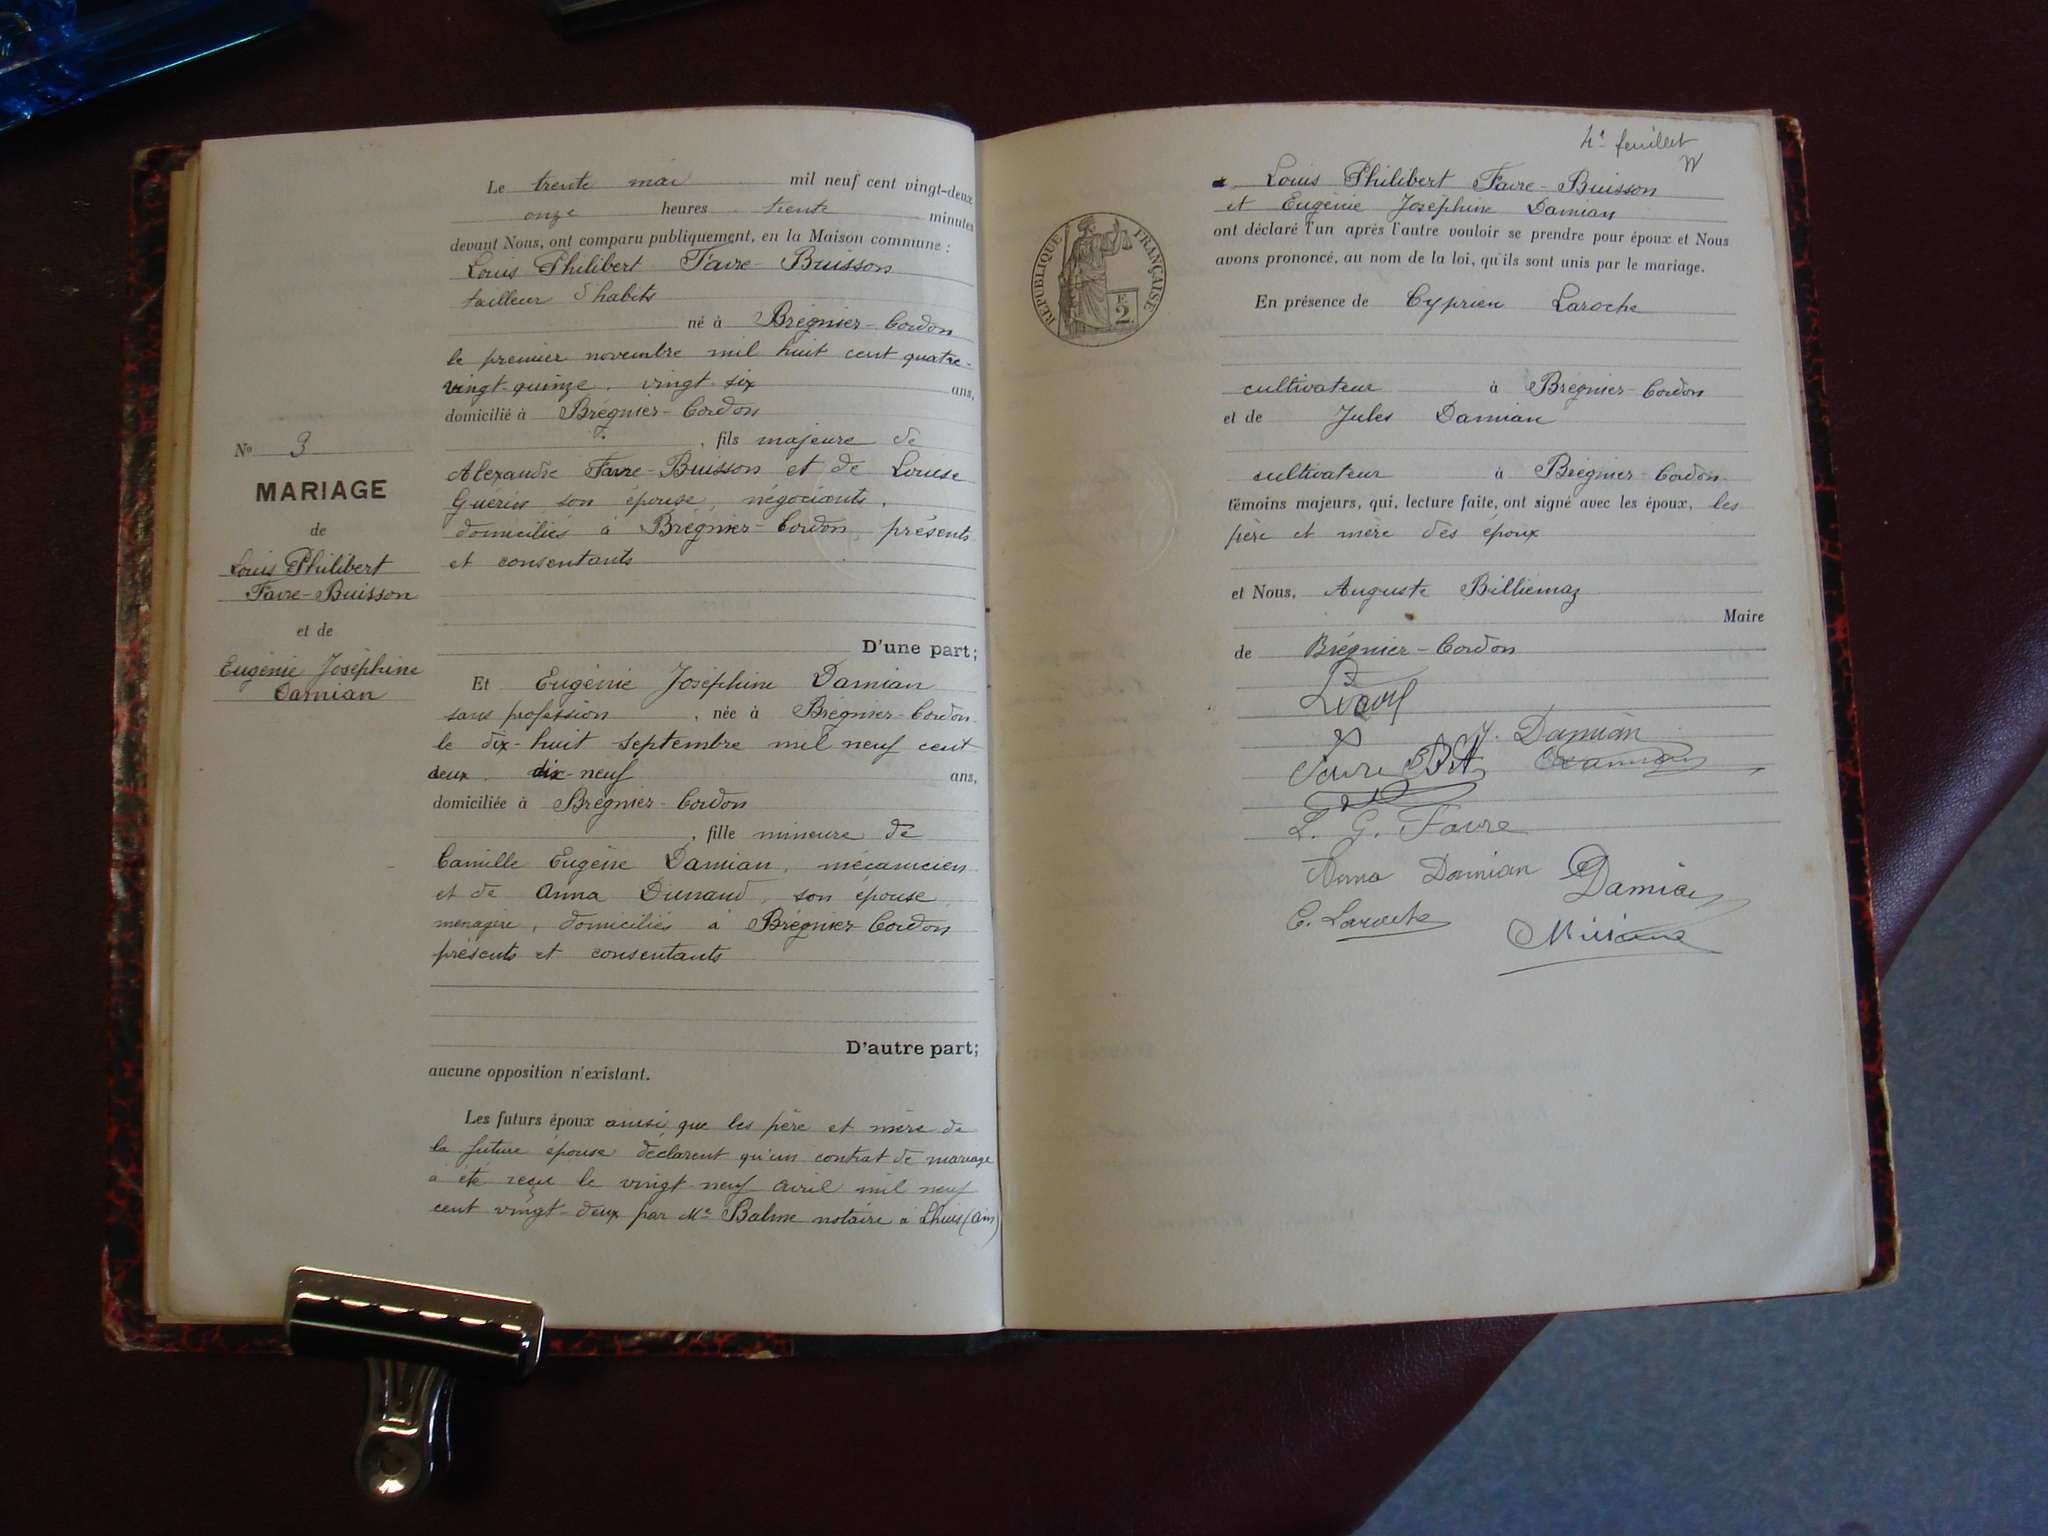 N° 3
MARIAGE
de
Louis Philibert
Favre-Buisson
et de
Eugénie Joséphine
Damian
Le trente mai mil neuf cent vingt-deux
onze heures trente minutes
devant Nous, ont comparu publiquement, en la Maison commune :
Louis Philibert Favre-Buisson
tailleur d'habits
né à Brégnier-Cordon
le premier novembre mil huit cent quatre-
vingt-quinze. vingt-six ans,
domicilié à Brégnier-Cordon
, fils majeure de
Alexandre Favre-Buisson et de Louise
Guérin son épouse, négociants,
domiciliés à Brégnier-Cordon, présents
et consentants
D'une part;
Et Eugénie Joséphine Damian
sans profession, née à Brégnier-Cordon
le dix-huit septembre mil neuf cent
deux. dix-neuf ans,
domiciliée à Brégnier-Cordon
, fille mineure de
Camille Eugène Damian, mécanicien
et de Anna Dunand, son épouse
ménagère, domiciliés à Brégnier-Cordon
présents et consentants
D'autre part;
aucune opposition n'existant.
Les futurs époux ainsi que les père et mère de
la future épouse déclarent qu'un contrat de mariage
a été reçu le vingt-neuf avril mil neuf
cent vingt-deux par Me Balme notaire à Lhuis (Ain)
4e feuillet
RÉPUBLIQUE FRANÇAISE
2 F
Louis Philibert Favre-Buisson
et Eugénie Joséphine Damian
ont déclaré l'un après l'autre vouloir se prendre pour époux et Nous
avons prononcé, au nom de la loi, qu'ils sont unis par le mariage.
En présence de Cyprien Laroche
cultivateur à Brégnier-Cordon
et de Jules Damian
cultivateur à Brégnier-Cordon
témoins majeurs, qui, lecture faite, ont signé avec les époux, les
père et mère des époux
et Nous, Auguste Billiemaz
Maire
de Brégnier-Cordon
J. Damian
Favre
Damian
L. G. Favre
Anna Damian
Damian
C. Laroche